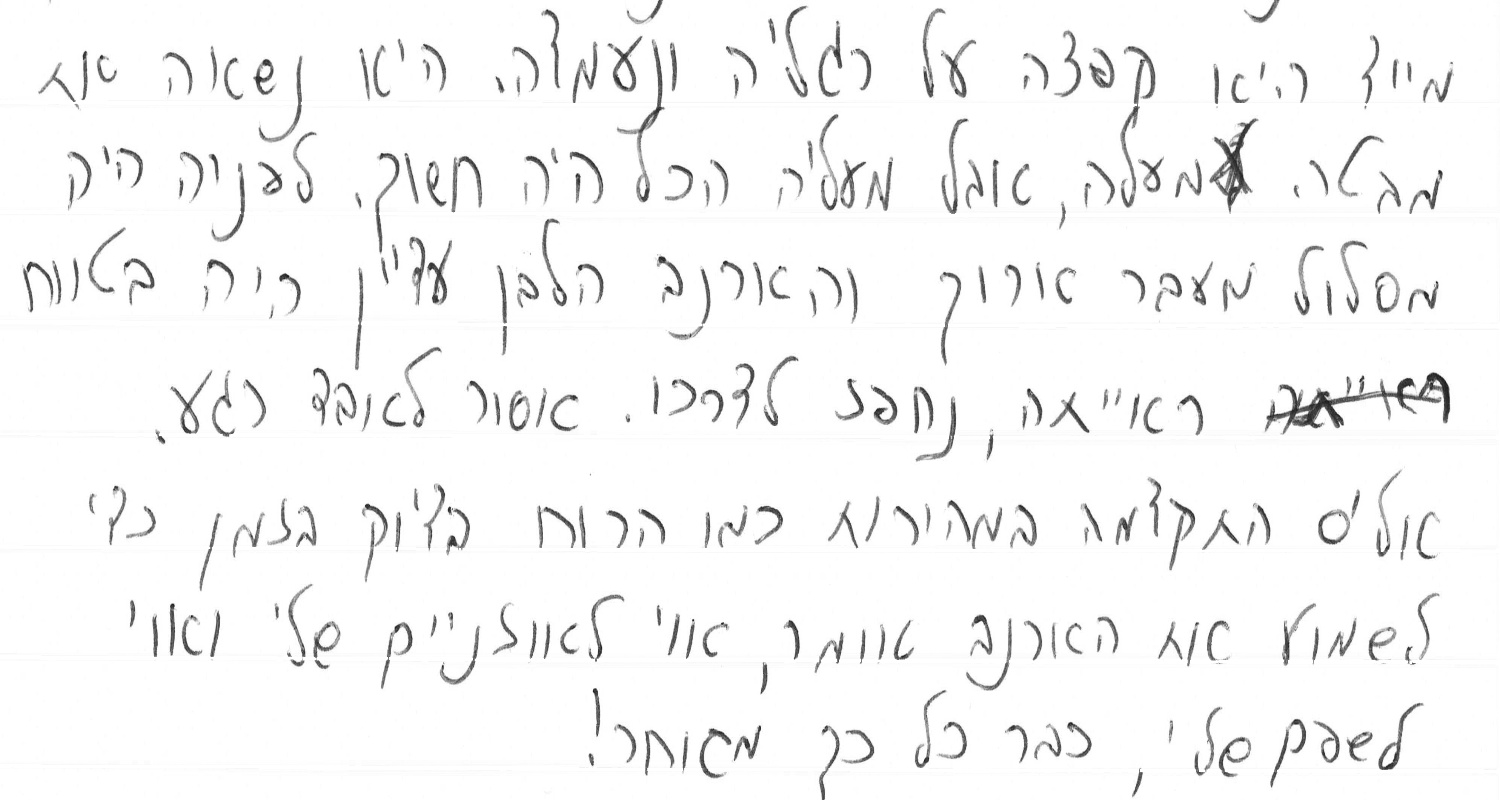 מייד היא קפצה על רגליה ונעמדה. היא נשאה את
מבטה למעלה, אבל מעליה הכל היה חשוך. לפניה היה
מסלול מעבר ארוך והארנב הלבן עדיין היה בטווח
ראייתה, נחפז לדרכו. אסור לאבד רגע.
אליס התקדמה במהירות כמו הרוח בדיוק בזמן כדי
לשמוע את הארנב אומר, אווי לאוזניים שלי ואווי
לשפם שלי, כבר כל כך מאוחר!